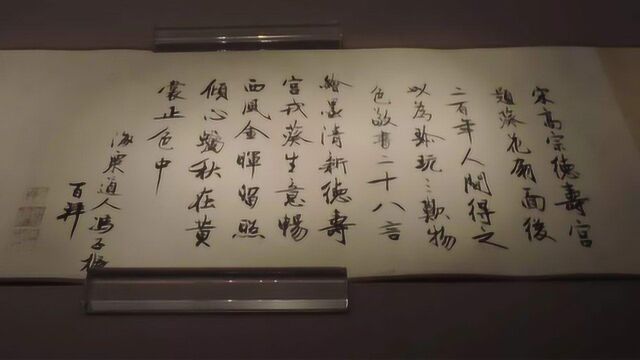 宋高宗德壽宫
題葵花扇面後
二百年人間得之
以為珎玩三歎物
色敬書二十八言
繪墨清新德壽
宫戎葵生意暢
西風金暉留照
傾心蠟秋在黄
裳正色中
海粟道人馮子振
百拜